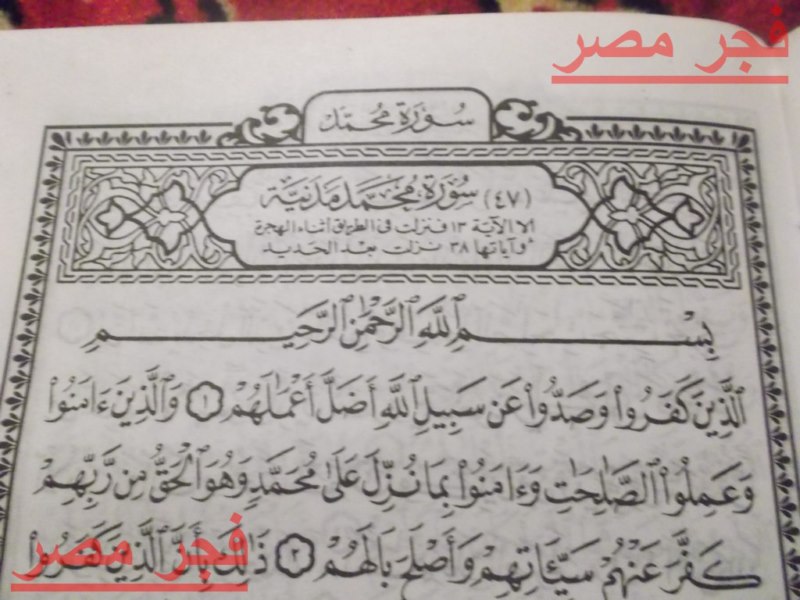 فجر مصر
سورة محمد
(٤٧) سورة محمد مدنية
الا الآية ١٣ فنزلت في الطريق أثناء الهجرة
وآياتها ٣٨ نزلت بعد الحديد
بِسْمِ ٱللَّهِ ٱلرَّحْمَٰنِ ٱلرَّحِيمِ
ٱلَّذِينَ كَفَرُوا۟ وَصَدُّوا۟ عَن سَبِيلِ ٱللَّهِ أَضَلَّ أَعْمَٰلَهُمْ ١ وَٱلَّذِينَ ءَامَنُوا۟
وَعَمِلُوا۟ ٱلصَّٰلِحَٰتِ وَءَامَنُوا۟ بِمَا نُزِّلَ عَلَىٰ مُحَمَّدٍ وَهُوَ ٱلْحَقُّ مِن رَّبِّهِمْ
كَفَّرَ عَنْهُمْ سَيِّـَٔاتِهِمْ وَأَصْلَحَ بَالَهُمْ ٢ ذَٰلِكَ بِأَنَّ ٱلَّذِينَ كَفَرُوا۟
فجر مصر